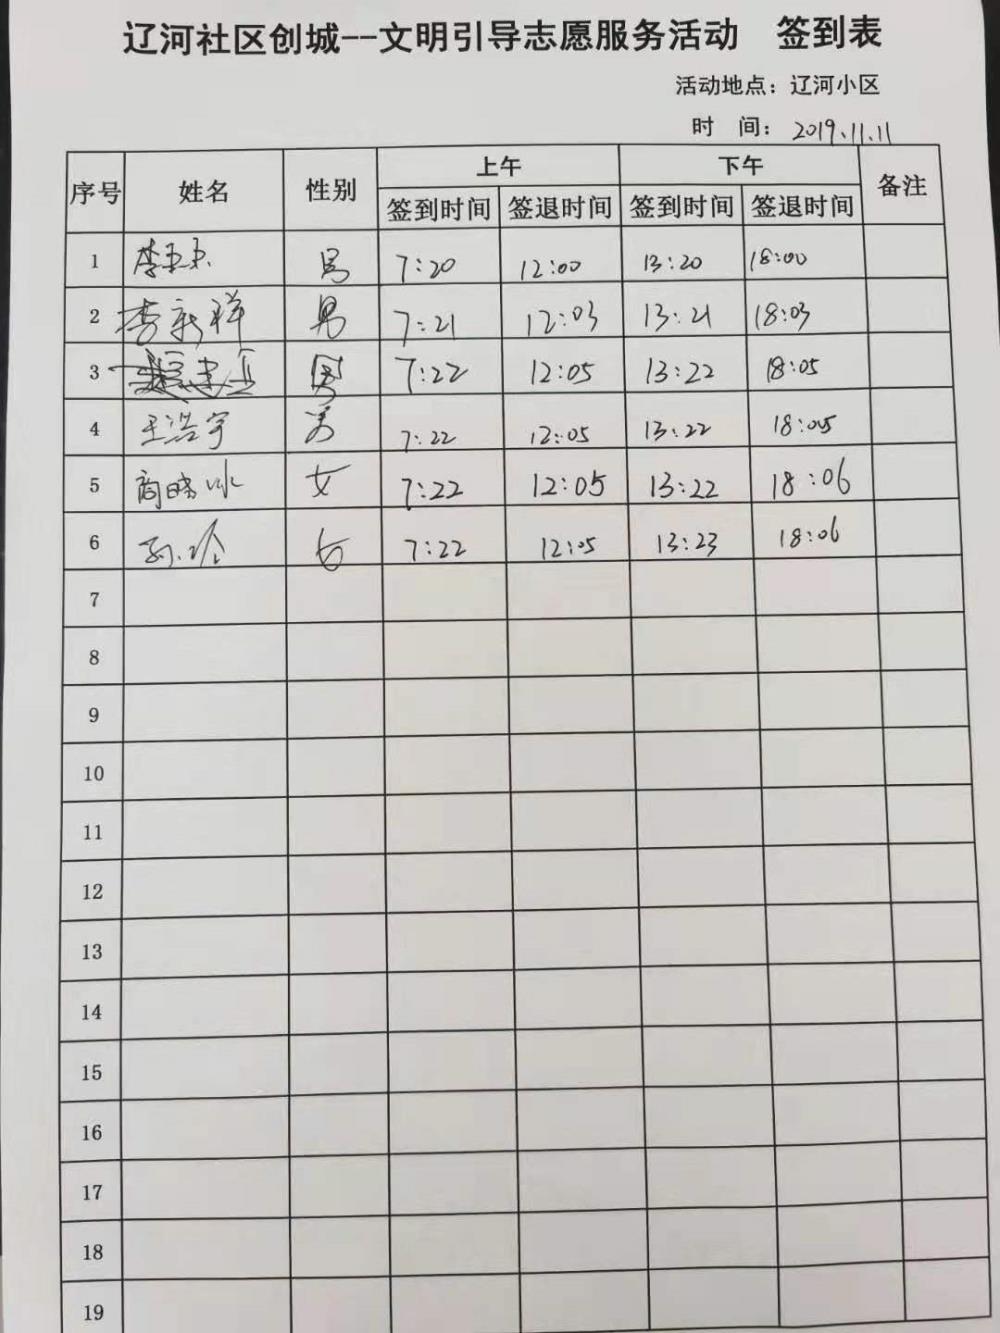 辽河社区创城--文明引导志愿服务活动 签到表
活动地点：辽河小区
时 间：2019.11.11
序号 姓名 性别 上午 下午 备注
签到时间 签退时间 签到时间 签退时间
1 男 7:20 12:00 13:20 18:00
2 李新祥 男 7:21 12:03 13:21 18:03
3 男 7:22 12:05 13:22 18:05
4 王浩宇 男 7:22 12:05 13:22 18:05
5 商晓冰 女 7:22 12:05 13:22 18:06
6 孙玲 女 7:22 12:05 13:23 18:06
7
8
9
10
11
12
13
14
15
16
17
18
19